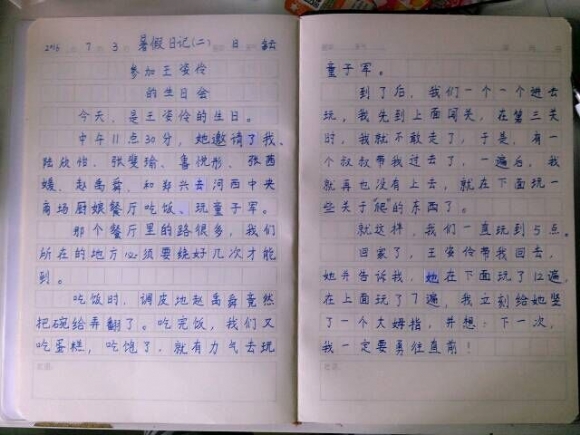 2016 7 3 暑假日记(二) 日
参加王姿伶
的生日会
今天，是王姿伶的生日。
中午11点30分，她邀请了我、
陆欣怡、张斐瑜、鲁悦彤、张茜
媛、赵禹舜，和郑兴去河西中央
商场厨娘餐厅吃饭、玩童子军。
那个餐厅里的路很多，我们
所在的地方必须要绕好几次才能
到。
吃饭时，调皮地赵禹舜竟然
把碗给弄翻了。吃完饭，我们又
吃蛋糕，吃饱了，就有力气去玩
童子军。
到了后，我们一个一个进去
玩，我先到上面闯关，在第三关
时，我就不敢走了，于是，有一
个叔叔带我过去了，一遍后，我
就再也没有上去，就在下面玩一
些关于“爬”的东西了。
就这样，我们一直玩到5点。
回家了，王姿伶带我回去，
她并告诉我，她在下面玩了12遍，
在上面玩了7遍，我立刻给她竖
了一个大姆指，并想：下一次，
我一定要勇往直前！